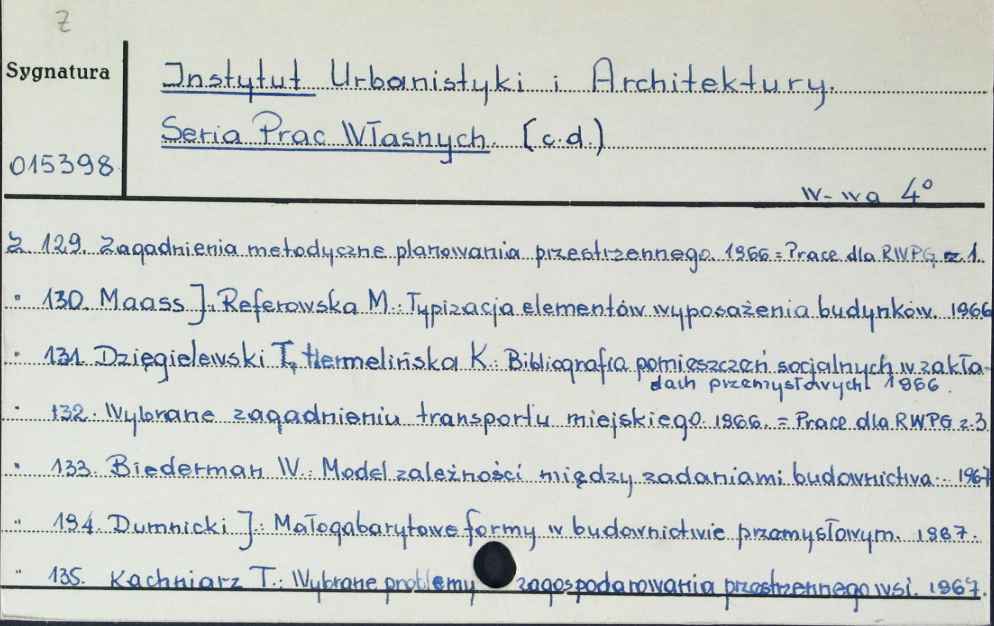 Z
Sygnatura
Instytut Urbanistyki i Architektury.
Seria Prac Własnych. (c.d.)
015398
W-wa 4°
Z 129. Zagadnienia metodyczne planowania przestrzennego. 1966 = Prace dla RWPG z. 1.
" 130. Maass J., Referowska M.: Typizacja elementów wyposażenia budynków. 1966
" 131. Dzięgielewski T., Hermelińska K.: Bibliografia pomieszczeń socjalnych w zakła-
dach przemysłowych 1966.
" 132. Wybrane zagadnieniu transportu miejskiego. 1966. = Prace dla RWPG z. 3
" 133. Biederman W.: Model zależności między zadaniami budownictwa... 1967
" 134. Dumnicki J.: Małogabarytowe formy w budownictwie przemysłowym. 1967.
" 135. Kachniarz T.: Wybrane problemy zagospodarowania przestrzennego wsi. 1967.